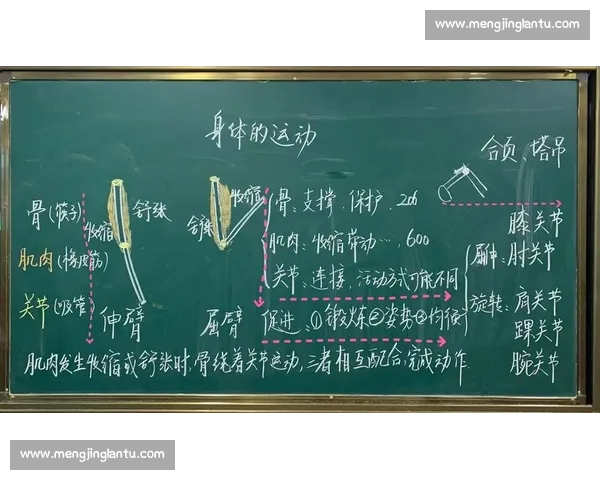 www.mengjinglantu.com
身体的运动
合页、塔吊
骨(筷子)
肌肉(橡皮筋)
关节(吸管)
收缩
舒张
伸臂
舒张
收缩
屈臂
骨:支撑、保护、206
肌肉:收缩带动…,600
关节:连接、活动方式可能不同
促进:①锻炼②姿势③均衡
膝关节
屈伸:肘关节
旋转:肩关节
踝关节
腕关节
肌肉发生收缩或舒张时,骨绕着关节运动,三者相互配合,完成动作.
www.mengjinglantu.com